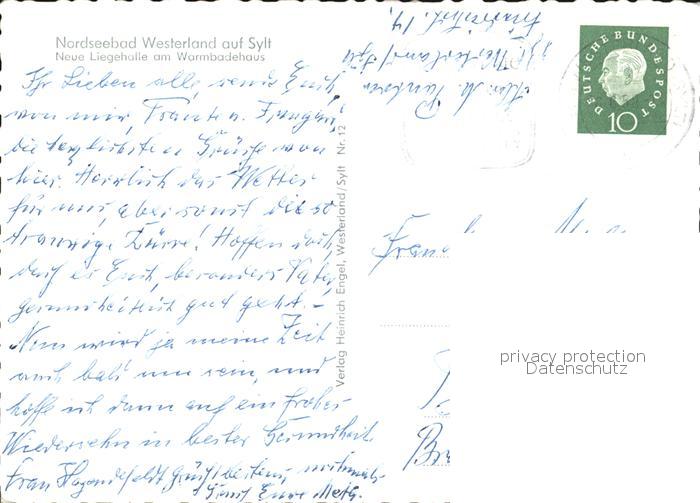 Nordseebad Westerland auf Sylt
Neue Liegehalle am Warmbadehaus
Ihr Lieben alle, sende Euch,
von mir,
die herzlichsten Grüsse von
hier. Herrlich das Wetter
für uns, aber sonst die so
traurige Dürre! Hoffen doch,
dass es Euch, besonders Vater,
gesundheitlich gut geht. -
Nun wird ja meine Zeit
auch bald um sein, und
hoffe ich dann auf ein frohes
Wiedersehn in bester Gesundheit.
Frau grüsst bestens, mitmals
Gruss Eure
Verlag Heinrich Engel, Westerland/Sylt Nr. 12
Westerland/Sylt
DEUTSCHE BUNDESPOST
10
privacy protection
Datenschutz